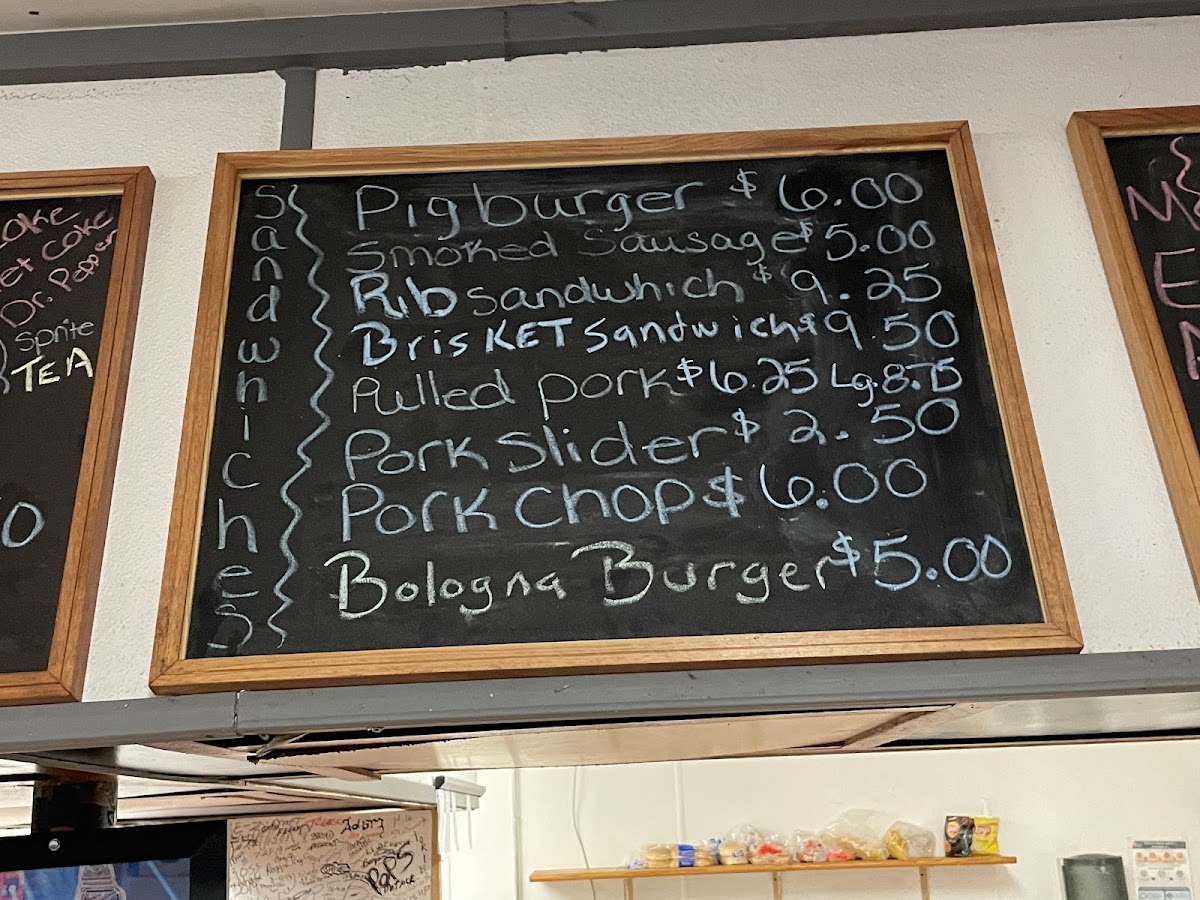 Coke
Diet Coke
Dr. Pepper
Sprite
TEA
Sandwhiches
Pigburger $6.00
Smoked Sausage $5.00
Rib sandwhich $9.25
BrisKET sandwich $9.50
Pulled pork $6.25 Lg. 8.75
Pork Slider $2.50
Pork Chop $6.00
Bologna Burger $5.00
M
E
N